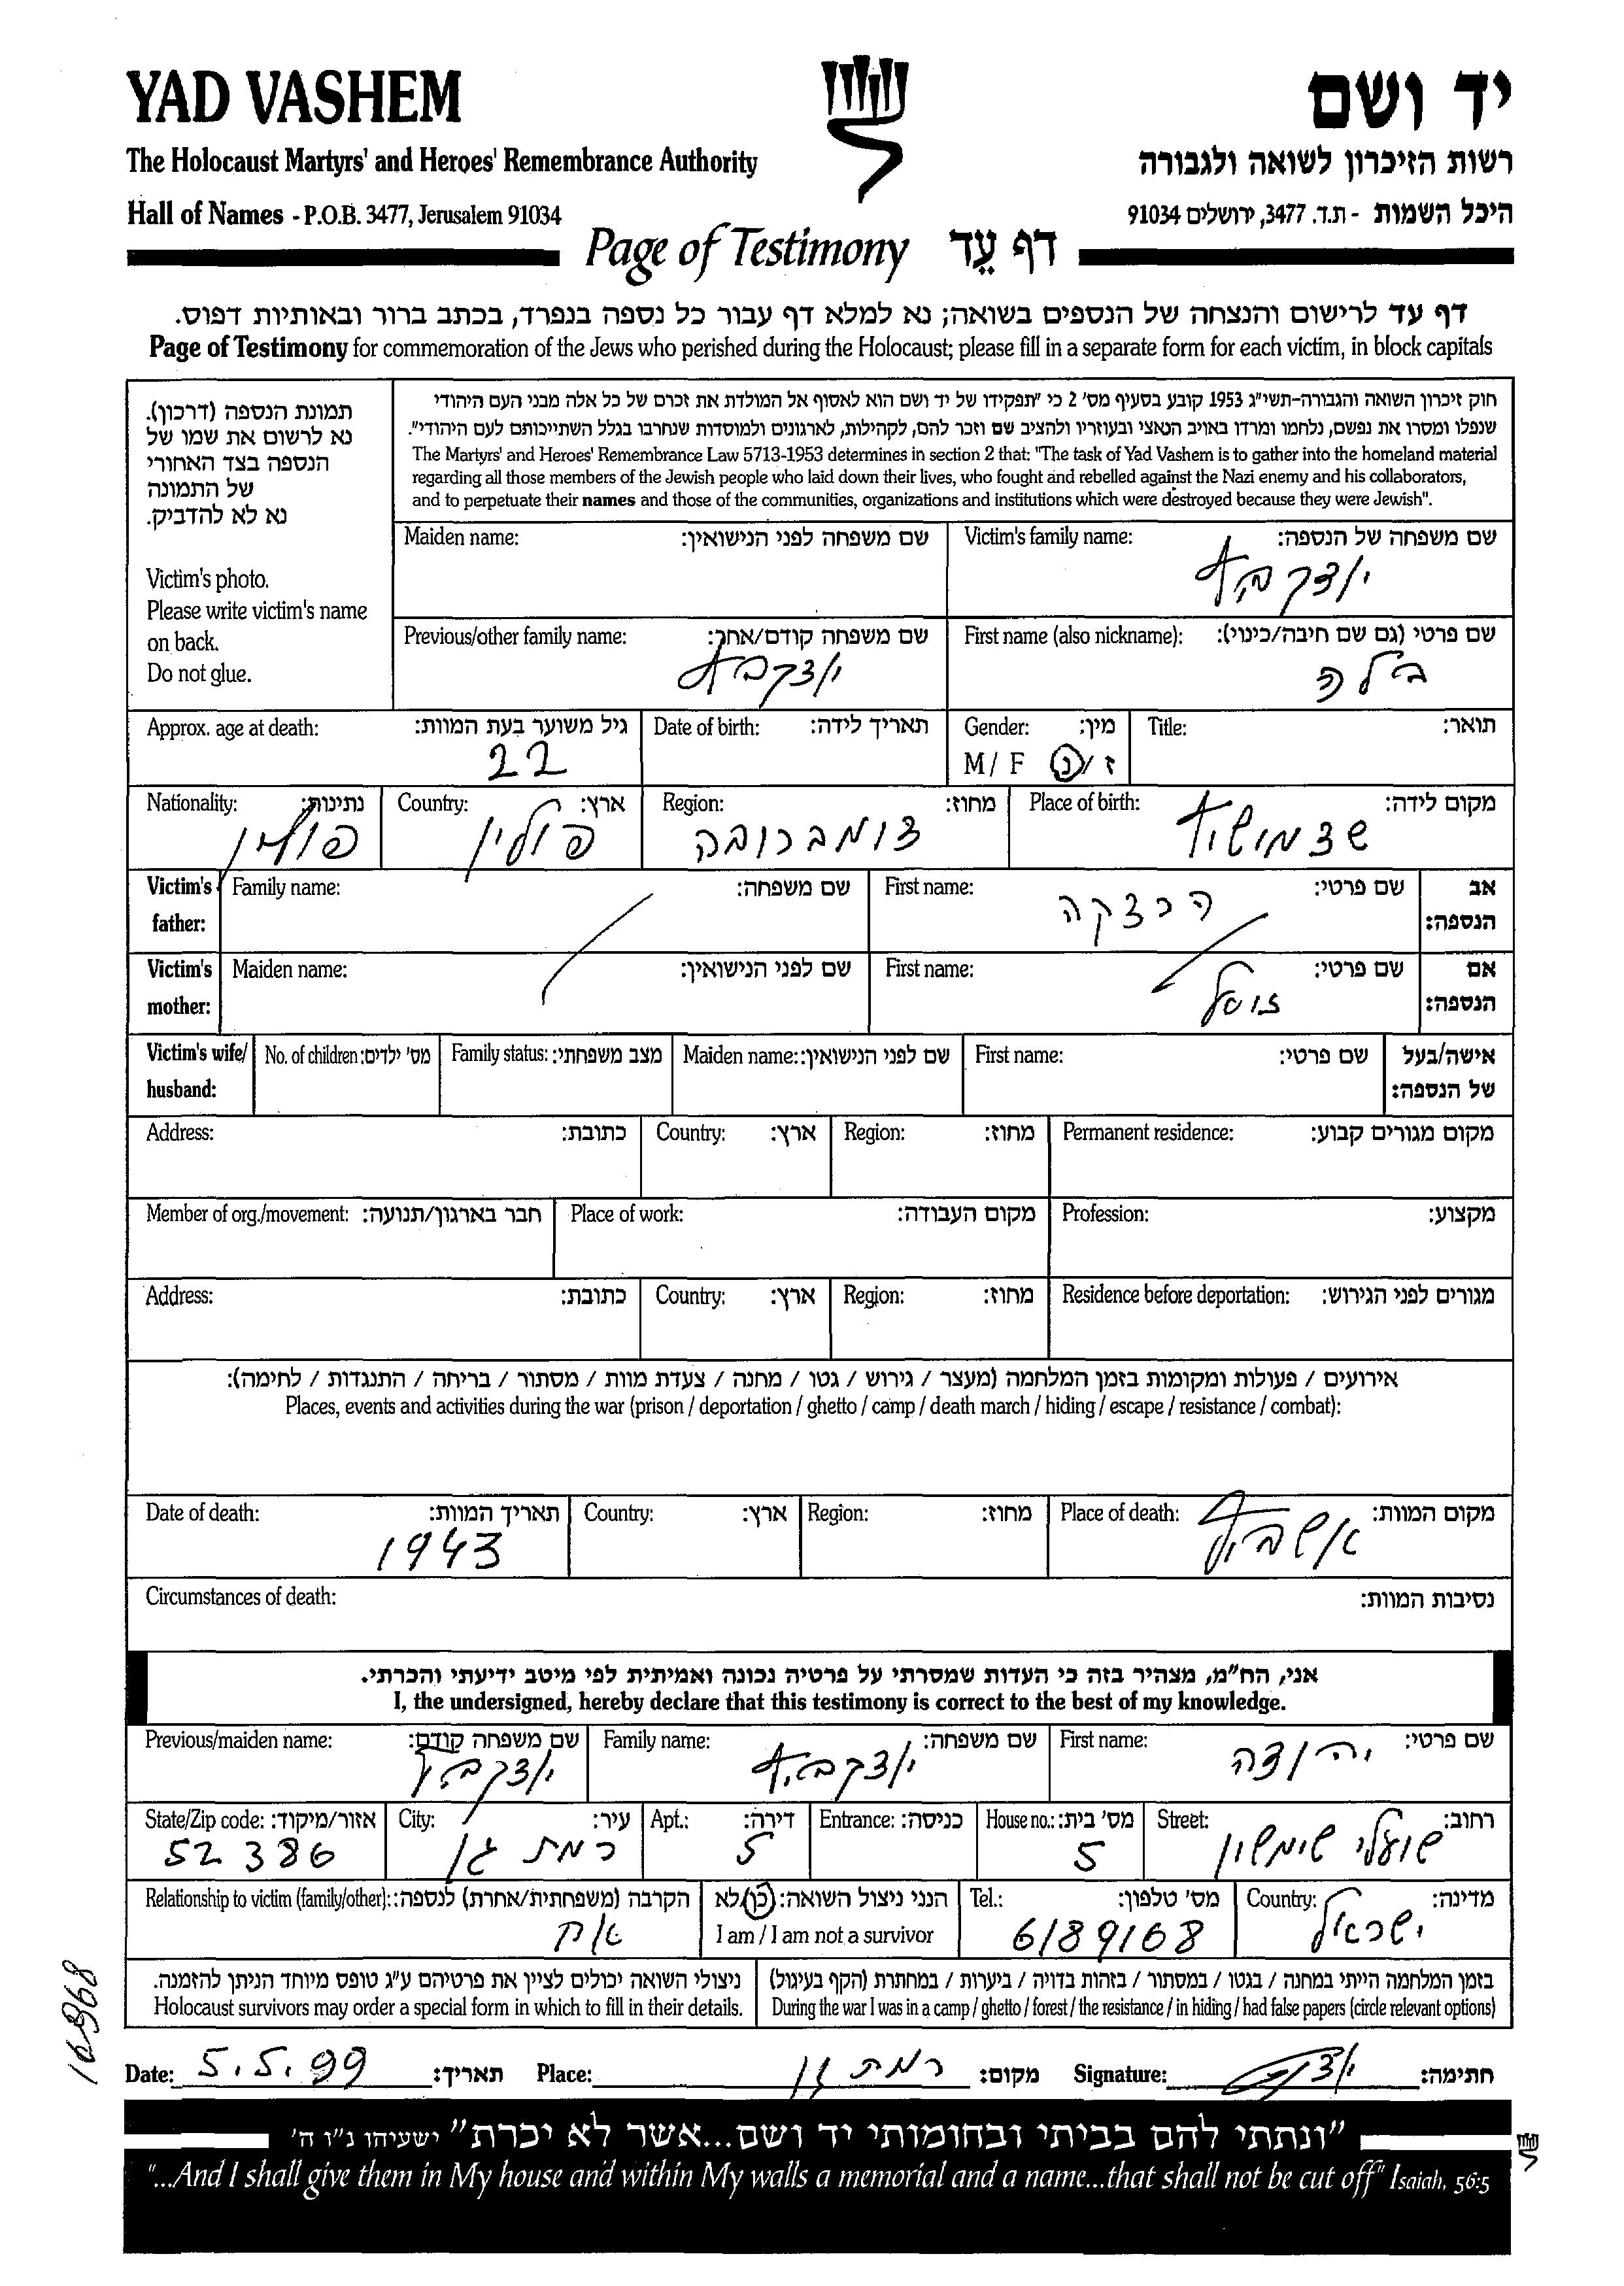 YAD VASHEM
יד ושם
The Holocaust Martyrs' and Heroes' Remembrance Authority
רשות הזיכרון לשואה ולגבורה
Hall of Names - P.O.B. 3477, Jerusalem 91034
היכל השמות - ת.ד. 3477, ירושלים 91034
Page of Testimony דף עֵד
דף עד לרישום והנצחה של הנספים בשואה; נא למלא דף עבור כל נספה בנפרד, בכתב ברור ובאותיות דפוס.
Page of Testimony for commemoration of the Jews who perished during the Holocaust; please fill in a separate form for each victim, in block capitals
תמונת הנספה (דרכון).
נא לרשום את שמו של
הנספה בצד האחורי
של התמונה
נא לא להדביק.
Victim's photo.
Please write victim's name
on back.
Do not glue.
חוק זיכרון השואה והגבורה-תשי"ג 1953 קובע בסעיף מס' 2 כי "תפקידו של יד ושם הוא לאסוף אל המולדת את זכרם של כל אלה מבני העם היהודי
שנפלו ומסרו את נפשם, נלחמו ומרדו באויב הנאצי ובעוזריו ולהציב שם וזכר להם, לקהילות, לארגונים ולמוסדות שנחרבו בגלל השתייכותם לעם היהודי".
The Martyrs' and Heroes' Remembrance Law 5713-1953 determines in section 2 that: "The task of Yad Vashem is to gather into the homeland material
regarding all those members of the Jewish people who laid down their lives, who fought and rebelled against the Nazi enemy and his collaborators,
and to perpetuate their names and those of the communities, organizations and institutions which were destroyed because they were Jewish".
Victim's family name: שם משפחה של הנספה:
Maiden name: שם משפחה לפני הנישואין:
First name (also nickname): שם פרטי (גם שם חיבה/כינוי):
בלה
Previous/other family name: שם משפחה קודם/אחר:
Title: תואר:
Gender: מין:
M / F ז / נ
Date of birth: תאריך לידה:
Approx. age at death: גיל משוער בעת המוות:
22
Place of birth: מקום לידה:
Region: מחוז:
דומברובה
Country: ארץ:
פולין
Nationality: נתינות:
פולין
Victim's father: אב הנספה:
First name: שם פרטי:
הרצקה
Family name: שם משפחה:
Victim's mother: אם הנספה:
First name: שם פרטי:
Maiden name: שם לפני הנישואין:
Victim's wife/husband: אישה/בעל של הנספה:
First name: שם פרטי:
Maiden name: שם לפני הנישואין:
Family status: מצב משפחתי:
No. of children: מס' ילדים:
Permanent residence: מקום מגורים קבוע:
Region: מחוז:
Country: ארץ:
Address: כתובת:
Profession: מקצוע:
Place of work: מקום העבודה:
Member of org./movement: חבר בארגון/תנועה:
Residence before deportation: מגורים לפני הגירוש:
Region: מחוז:
Country: ארץ:
Address: כתובת:
אירועים / פעולות ומקומות בזמן המלחמה (מעצר / גירוש / גטו / מחנה / צעדת מוות / מסתור / בריחה / התנגדות / לחימה):
Places, events and activities during the war (prison / deportation / ghetto / camp / death march / hiding / escape / resistance / combat):
Place of death: מקום המוות:
אושביץ
Region: מחוז:
Country: ארץ:
Date of death: תאריך המוות:
1943
Circumstances of death: נסיבות המוות:
אני, הח"מ, מצהיר בזה כי העדות שמסרתי על פרטיה נכונה ואמיתית לפי מיטב ידיעתי והכרתי.
I, the undersigned, hereby declare that this testimony is correct to the best of my knowledge.
First name: שם פרטי:
יהודה
Family name: שם משפחה:
Previous/maiden name: שם משפחה קודם:
Street: רחוב:
שועלי שימשון
House no.: מס' בית:
5
Entrance: כניסה:
Apt.: דירה:
5
City: עיר:
רמת גן
State/Zip code: אזור/מיקוד:
52386
Country: מדינה:
ישראל
Tel.: מס' טלפון:
6189168
הנני ניצול השואה: כן/לא
I am / I am not a survivor
Relationship to victim (family/other): הקרבה (משפחתית/אחרת) לנספה:
אח
בזמן המלחמה הייתי במחנה / בגטו / במסתור / בזהות בדויה / ביערות / במחתרת (הקף בעיגול)
During the war I was in a camp / ghetto / forest / the resistance / in hiding / had false papers (circle relevant options)
ניצולי השואה יכולים לציין את פרטיהם ע"ג טופס מיוחד הניתן להזמנה.
Holocaust survivors may order a special form in which to fill in their details.
Date: 5.5.99 תאריך:
Place: רמת גן מקום:
Signature: חתימה:
"ונתתי להם בביתי ובחומותי יד ושם...אשר לא יכרת" ישעיהו נ"ו ה'
"...And I shall give them in My house and within My walls a memorial and a name...that shall not be cut off" Isaiah, 56:5